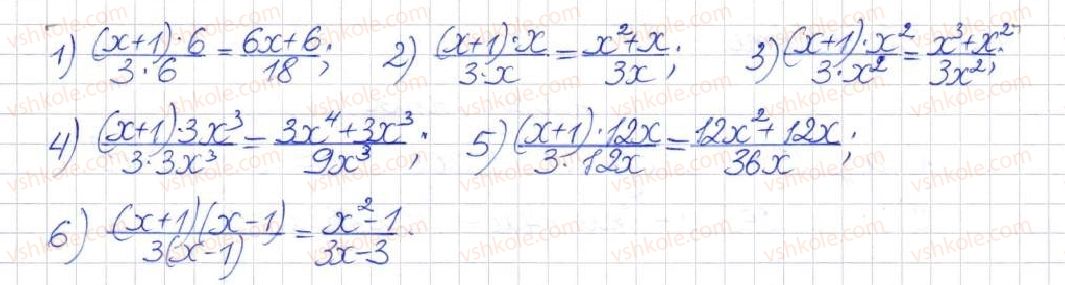 1) (x+1)·6/3·6 = 6x+6/18; 2) (x+1)·x/3·x = x²+x/3x; 3) (x+1)·x²/3·x² = x³+x²/3x²;
4) (x+1)·3x³/3·3x³ = 3x⁴+3x³/9x³; 5) (x+1)·12x/3·12x = 12x²+12x/36x;
6) (x+1)(x-1)/3(x-1) = x²-1/3x-3.
vshkole.com